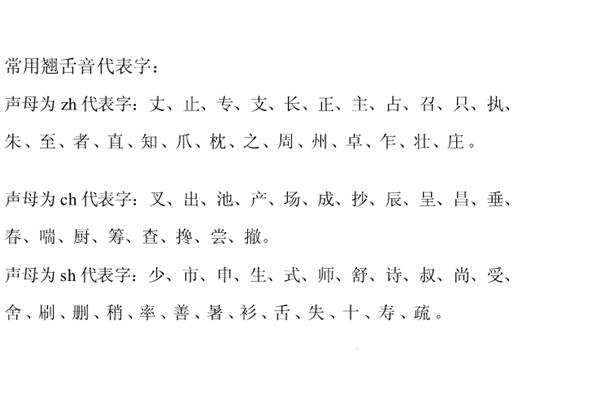 常用翘舌音代表字：
声母为 zh 代表字：丈、止、专、支、长、正、主、占、召、只、执、
朱、至、者、直、知、爪、枕、之、周、州、卓、乍、壮、庄。
声母为 ch 代表字：叉、出、池、产、场、成、抄、辰、呈、昌、垂、
春、喘、厨、筹、查、搀、尝、撤。
声母为 sh 代表字：少、市、申、生、式、师、舒、诗、叔、尚、受、
舍、刷、删、稍、率、善、暑、衫、舌、失、十、寿、疏。